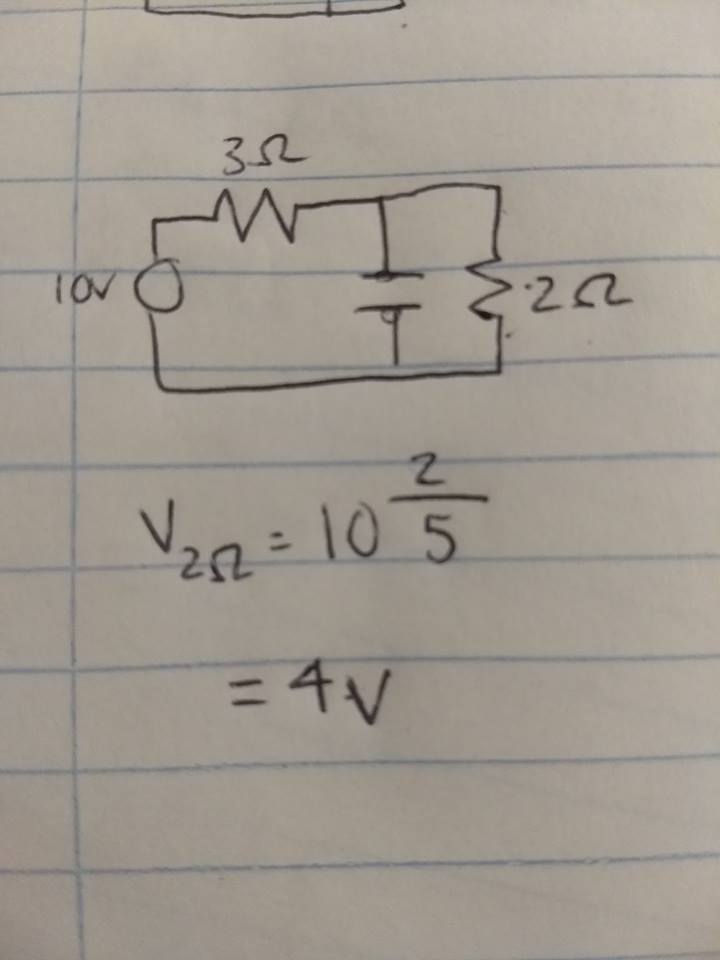 3Ω
10V
2Ω
V2Ω = 10 2/5
= 4V